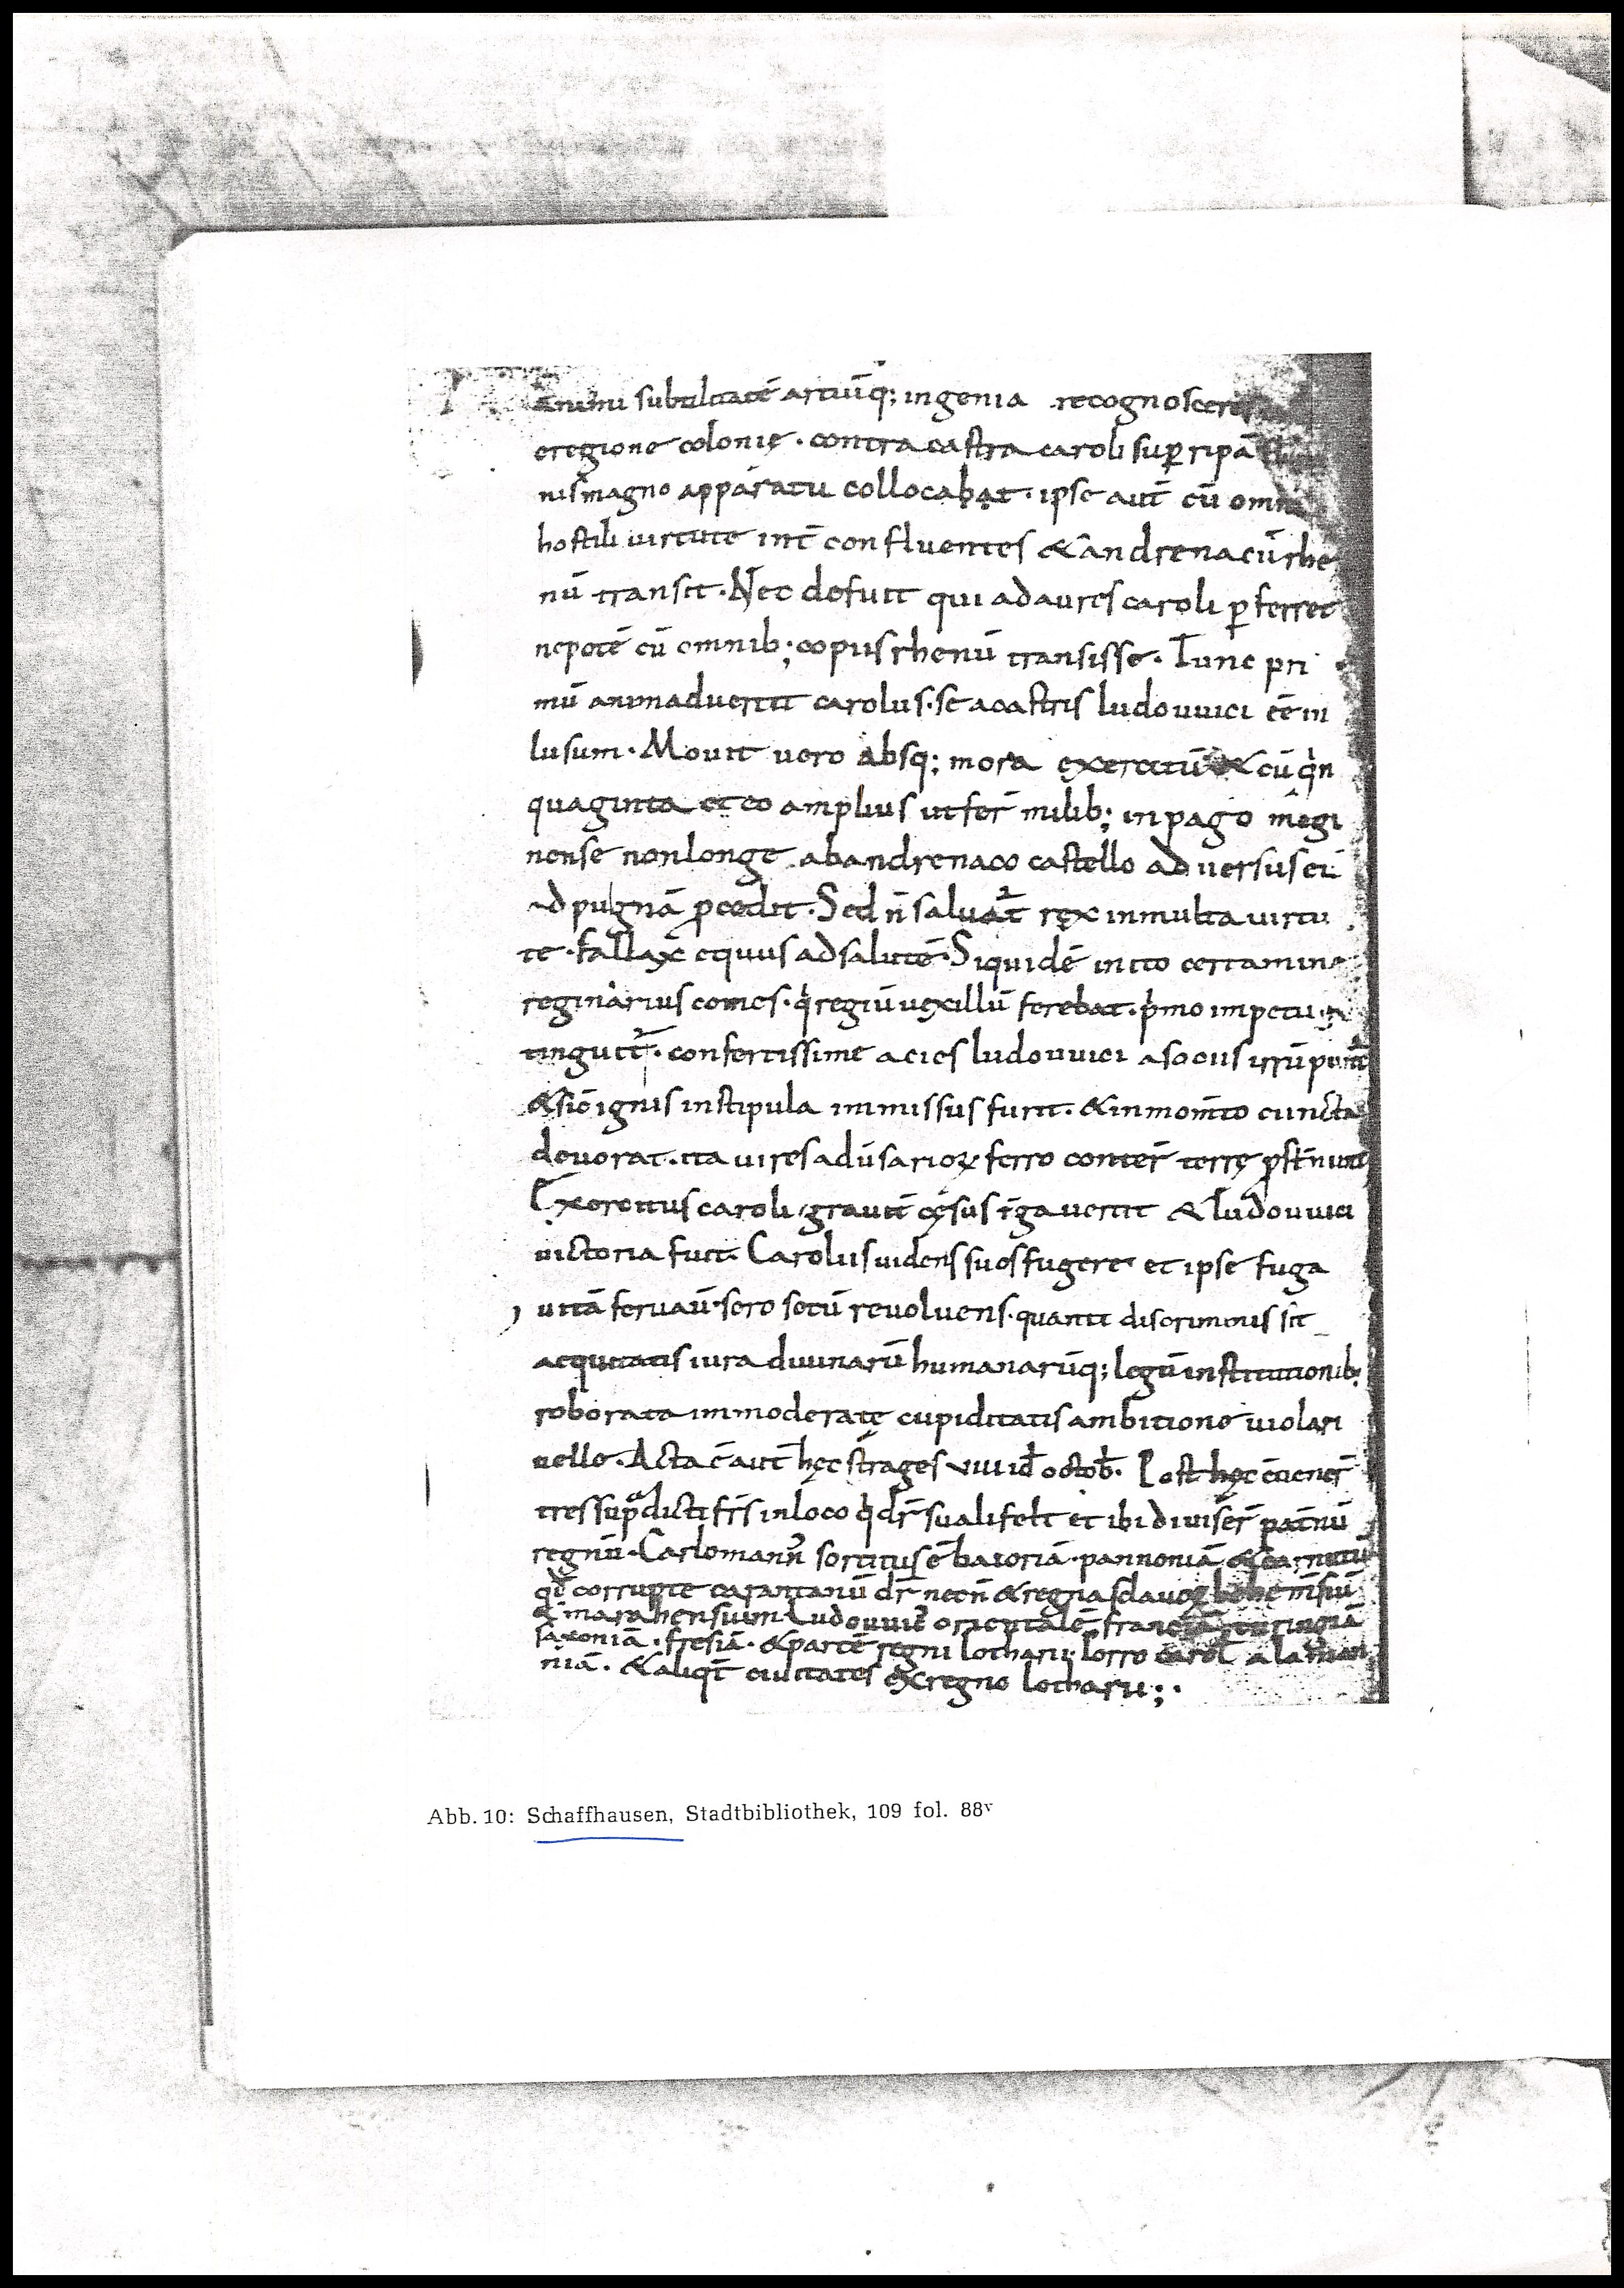 animi subtilitatē artiūq; ingenia recognoscere
eregione colonię · contra castra caroli sup ripā
nis magno apparatu collocabat · ipse aut̄ cū omni
hostili uirtute int̄ confluentes & andrenacū rhe
nū transit · Nec defuit qui ad aures caroli ꝑferret
nepotē cū omnib; copiis rhenū transisse · Tunc pri
mū animaduertit carolus · se a castris ludouuici eē in
lusum · Mouit uero absq; mora exercitū & cū qin
quaginta et eo amplius ut fer̄ milib; in pago megi
nense non longe ab andrenaco castello aduersus ei
ad pugnā ꝓcedit · Sed n̄ saluat̄ rex in multa uirtu
te · fallax equus ad salutē · Siquidē inito certamine
reginarius comes · q regiū uexillū ferebat · pmo impetu
tinguit̄ · confertissime acies ludouuici a sociis irrūpunt̄
& sic̄ ignis in stipula immissus furit · & in mom̄to cuncta
deuorat · ita uires adūsarioꝝ ferro conter̄ terrę ꝓst̄nunt
Exercitus caroli grauit̄ cęsus t̄ga uertit & ludouuici
uictoria fuit · Carolus uidens suos fugere et ipse fuga
uitā seruaū · sero secū reuoluens · quanti discriminis sit
aequitatis iura diuinarū humanarūq; legū institutionib;
roborata immoderatę cupiditatis ambitione uiolari
uelle · Acta ē aut̄ hęc strages viii id octob̄ · Post hęc cōuener̄
tres sup̄dicti fr̄s in loco q dr̄ sualifelt et ibi diuiser̄ pat̄nū
regnū · Carlomann sortitus ē baioriā · pannoniā & carnutū
qd̄ corrupte carantanū dr̄ necn̄ & regna sclauoꝝ behemsiū
& marahensium Ludouuic̄ orientalē franciā turingiā
saxoniā · fresiā · & partē regni lotharii · Porro carol̄ alaman
niā · & aliqt̄ ciuitates ex regno lotharii ; ·
Abb. 10: Schaffhausen, Stadtbibliothek, 109 fol. 88v